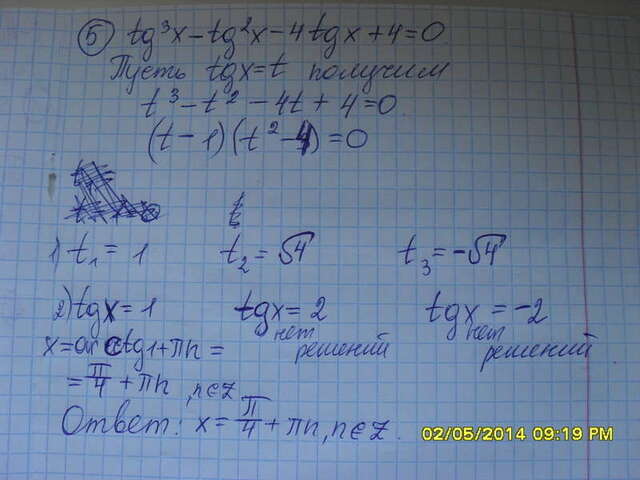 5) tg³x - tg²x - 4tgx + 4 = 0
Пусть tgx = t получим
t³ - t² - 4t + 4 = 0
(t - 1)(t² - 4) = 0
1) t₁ = 1 t₂ = √4 t₃ = -√4
2) tgx = 1 tgx = 2 tgx = -2
x = arctg1 + πn = нет решений нет решений
= π/4 + πn, n∈Z
Ответ: x = π/4 + πn, n∈Z.
02/05/2014 09:19 PM